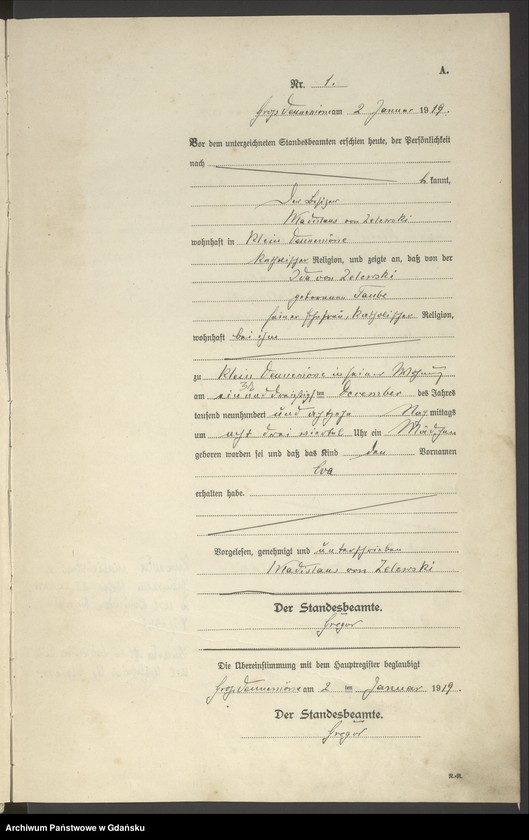 A.
Nr. 1.
am 2 Januar 1919.
Vor dem unterzeichneten Standesbeamten erschien heute, der Persönlichkeit
nach
be kannt,
Der Besitzer
Wladislaus von Zelewski
wohnhaft in Klein
katholischer Religion, und zeigte an, daß von der
Ida von Zelewski
geborenen Taube
seiner Ehefrau, katholischer Religion,
wohnhaft bei ihm
zu Klein in seiner Wohnung
am ein und dreißigsten Dezember des Jahres
tausend neunhundert und achtzehn Nachmittags
um acht drei viertel Uhr ein Mädchen
geboren worden sei und daß das Kind den Vornamen
Eva
erhalten habe.
Vorgelesen, genehmigt und unterschrieben
Wladislaus von Zelewski
Der Standesbeamte.
Gregor
Die Übereinstimmung mit dem Hauptregister beglaubigt
am 2 ten Januar 1919.
Der Standesbeamte.
Gregor
Archiwum Państwowe w Gdańsku